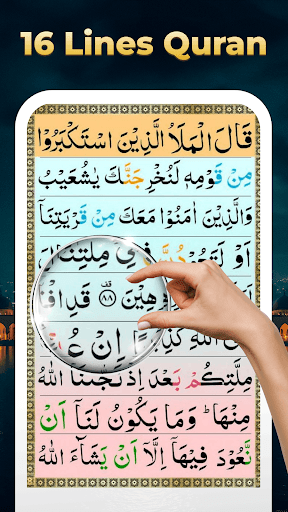 16 Lines Quran
قَالَ الْمَلَاُ الَّذِيْنَ اسْتَكْبَرُوْا
مِنْ قَوْمِهٖ لَنُخْرِجَنَّكَ يٰشُعَيْبُ
وَالَّذِيْنَ اٰمَنُوْا مَعَكَ مِنْ قَرْيَتِنَاۤ
اَوْ لَتَعُوْدُنَّ فِيْ مِلَّتِنَا
رِهِيْنَ ۸۸ قَدِ افْ
كَذِبًا اِنْ عُ
مِلَّتِكُمْ بَعْدَ اِذْ نَجّٰىنَا اللّٰهُ
مِنْهَا ؕ وَمَا يَكُوْنُ لَنَاۤ اَنْ
نَّعُوْدَ فِيْهَاۤ اِلَّاۤ اَنْ يَّشَآءَ اللّٰهُ